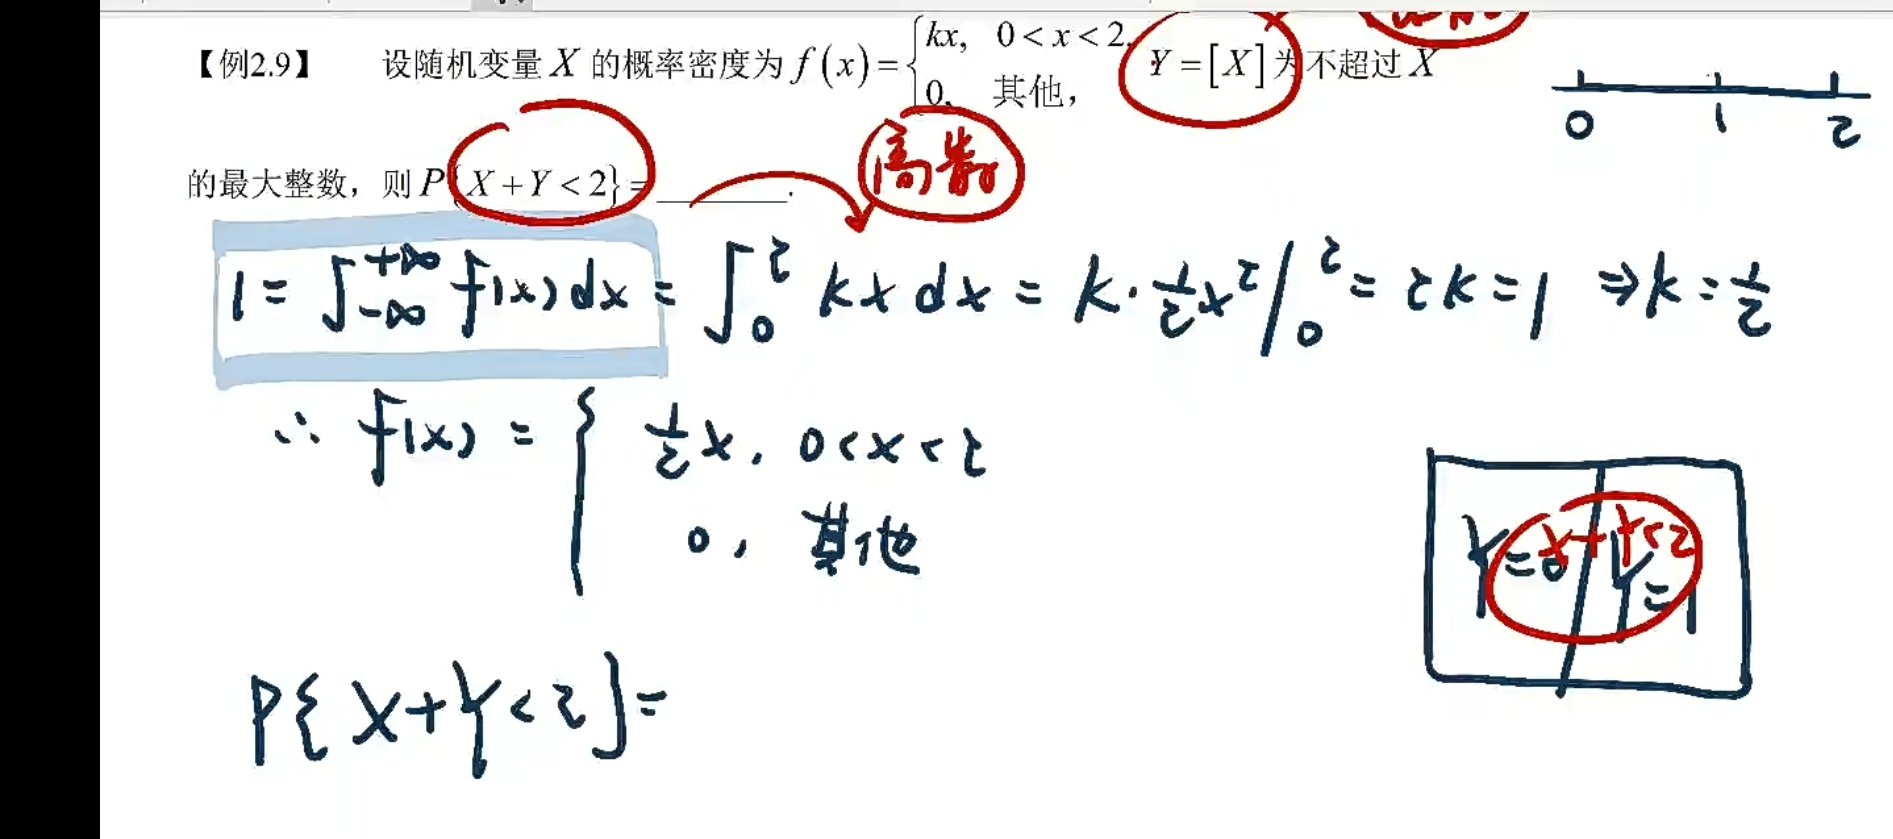 【例2.9】 设随机变量 X 的概率密度为 f(x)={kx, 0<x<2, 0, 其他, Y=[X]为不超过 X
0 1 2
高数
的最大整数，则 P{X+Y<2}=________.
1=∫_{-∞}^{+∞} f(x)dx = ∫_0^2 kx dx = k·½x²/_0^2 = 2k=1 ⇒k=½
∴ f(x) = { ½x, 0<x<2
0, 其他
Y=0 Y=1
X+Y<2
P{X+Y<2}=